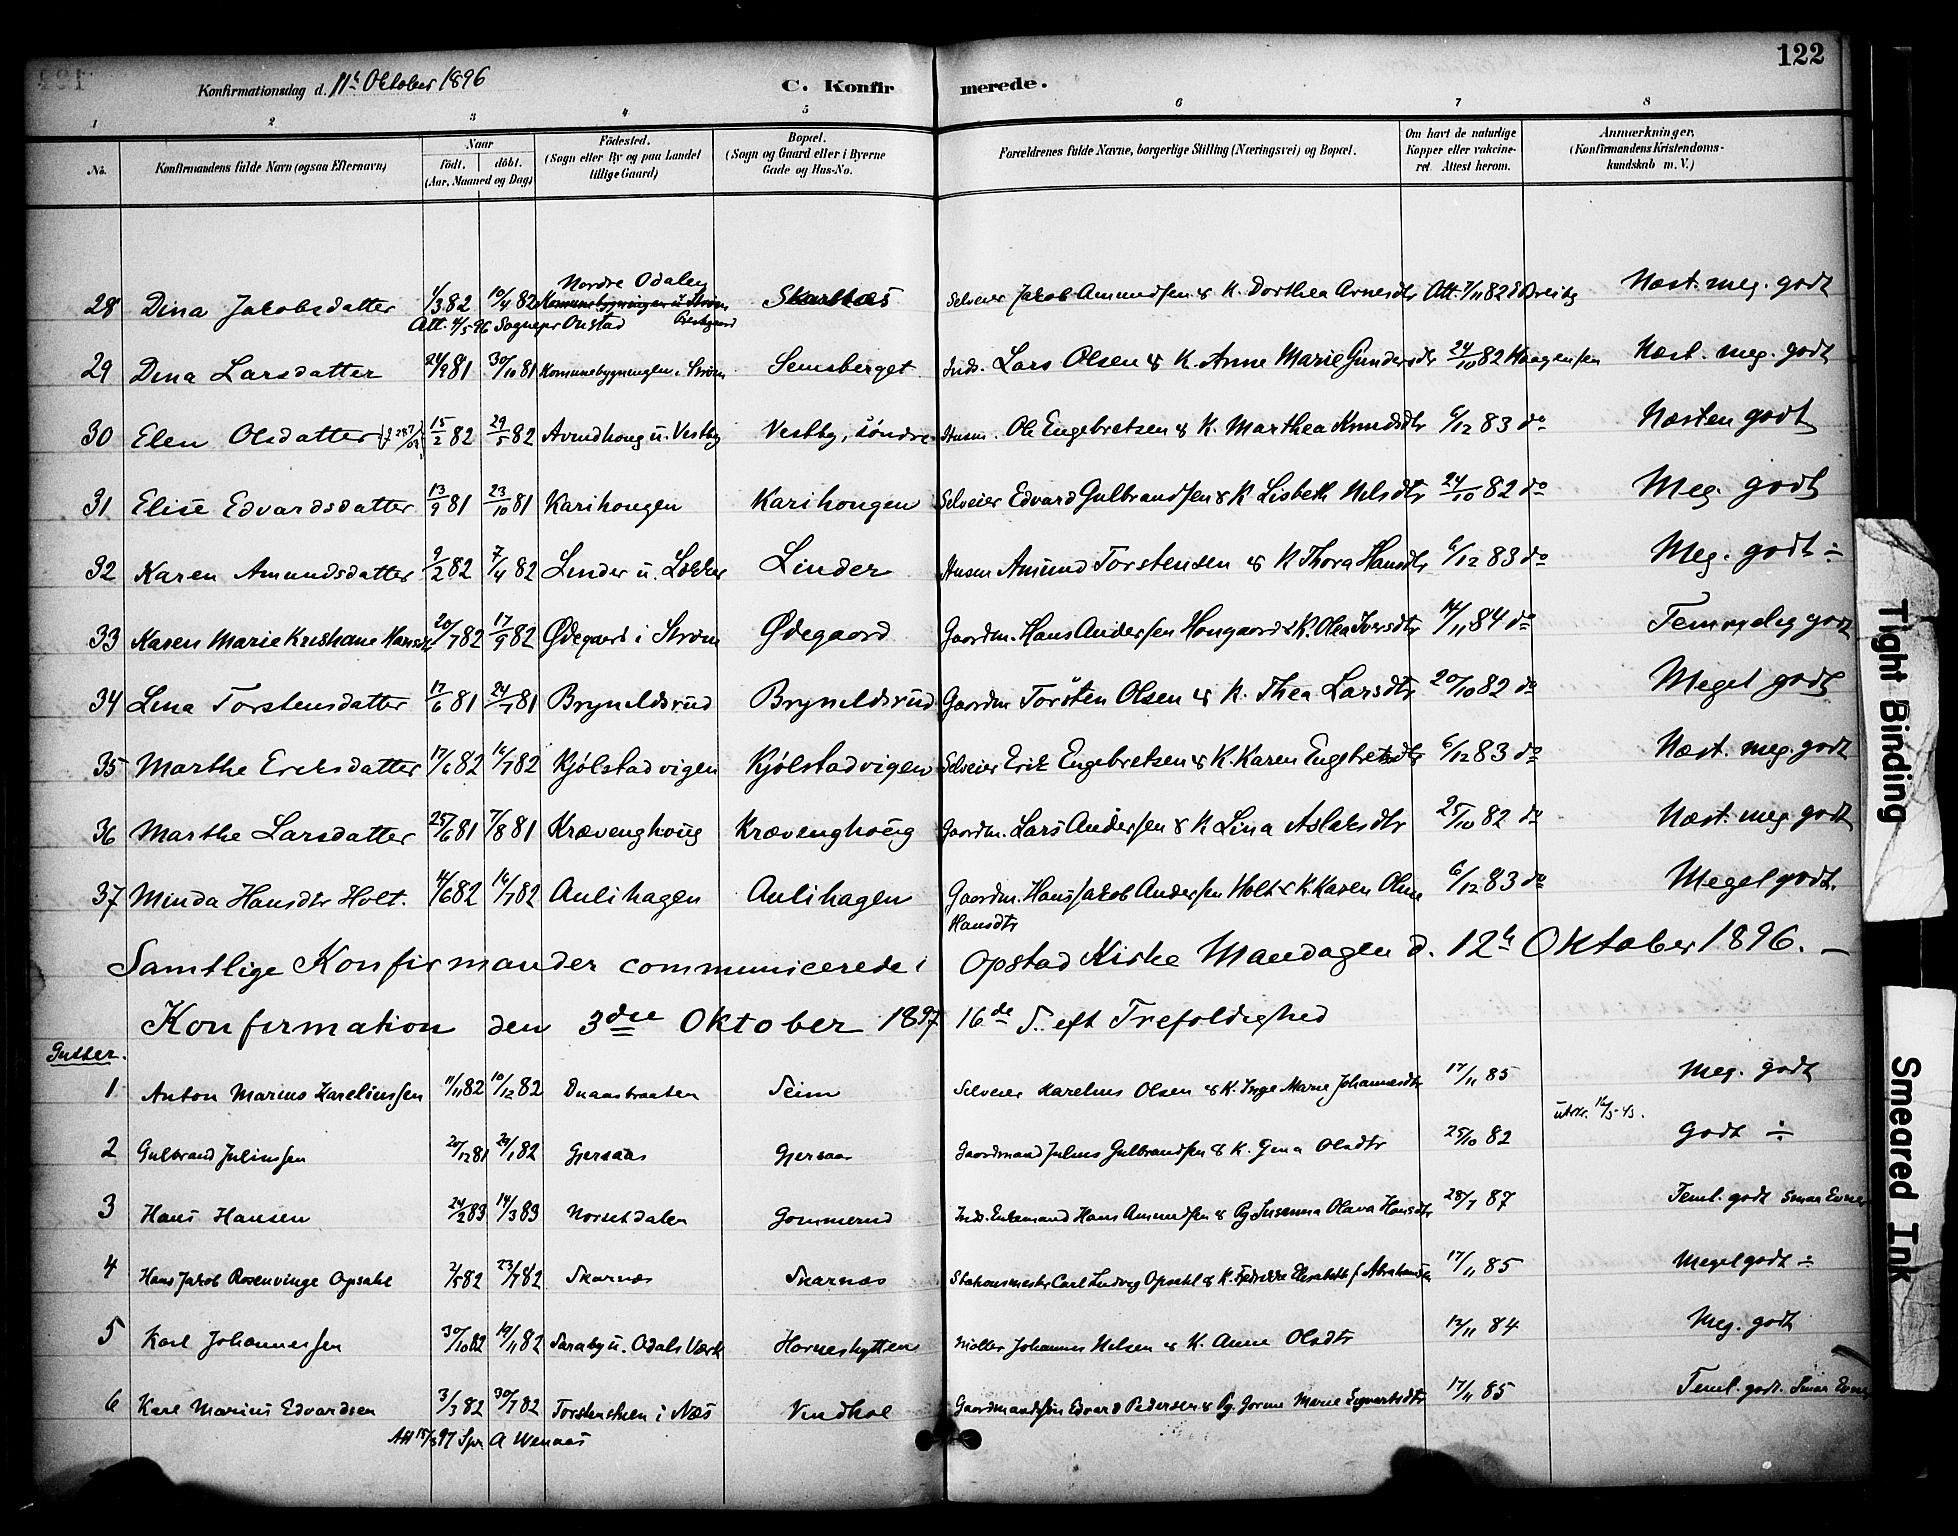 122
Konfirmationsdag d. 11t Oktober 1896
C. Konfirmerede.
1 2 3 4 5 6 7 8
No. Konfirmandens fulde Navn (ogsaa Efternavn) Naar födt. döbt. (Aar, Maaned og Dag) Födested. (Sogn eller By og paa Landet tillige Gaard) Bopæl. (Sogn og Gaard eller i Byerne Gade og Hus-No. Forældrenes fulde Navne, borgerlige Stilling (Næringsvei) og Bopæl. Om havt de naturlige Kopper eller vakcineret. Attest herom. Anmærkninger. (Konfirmandens Kristendomskundskab m. V.)
Nordre Odalen
28 Dina Jakobsdatter 1/3 82 10/4 82 Kommunebygningen i Strøm Skarnæs Selveier Jakob Amundsen & K. Dorthea Arnesdtr Att. 7/11 82 Næst. meg. godt
Att. 4/5 96 Sognepr Onstad
29 Dina Larsdatter 24/9 81 30/10 81 Kommunebygningen i Strøm Semsberget Inds. Lars Olsen & K. Anne Marie Gundersdtr 24/10 82 Kaagensen Næst. meg. godt
30 Elen Olsdatter 15/2 82 29/5 82 Arndhoug u. Vestby Vestby, söndre Husm. Ole Engebretsen & K. Marthea Knudsdtr 6/12 83 do Næsten godt
31 Elise Edvardsdatter 13/9 81 23/10 81 Karihougen Karihougen Selveier Edvard Gulbrandsen & K Lisbeth Nilsdtr 24/10 82 do Meg. godt
32 Karen Amundsdatter 9/2 82 7/4 82 Linder u. Lokker Linder Husm Amund Torstensen & K Thora Hansdtr 6/12 83 do Meg. godt ÷
33 Karen Marie Kristiane Hansdtr 20/7 82 17/9 82 Ødegaard i Strøm Ødegaard Gaardm. Hans Andersen Hougaard & K. Olea Iversdtr 14/11 84 do Temmelig godt
34 Lina Torstensdatter 17/6 81 24/7 81 Bryneldsrud Bryneldsrud Gaardm Torsten Olsen & K. Thea Larsdtr 20/10 82 do Meget godt
35 Marthe Eriksdatter 17/6 82 16/7 82 Kjölstadvigen Kjölstadvigen Selveier Erik Engebretsen & K. Karen Engebretsdtr 6/12 83 do Næst. meg. godt
36 Marthe Larsdatter 25/6 81 7/8 81 Krævenghoug Krævenghoug Gaardm. Lars Andersen & K Lina Aslaksdtr 25/10 82 do Næst. meg. godt
37 Minda Hansdtr Holt. 4/6 82 16/7 82 Aulihagen Aulihagen Gaardm. Hans Jakob Andersen Holt & K. Karen Oline 6/12 83 do Meget godt.
Hansdtr
Samtlige Konfirmander communicerede i Opstad Kirke Mandagen d. 12t Oktober 1896. —
Konfirmation den 3die Oktober 1897 16de S. eft Trefoldighed
Gutter.
1 Anton Marius Karelinssen 11/11 82 10/12 82 Seim Selveier Karelius Olsen & K. Inge Marie Johannesdtr 17/11 85 Meg. godt
utskr. 16/5-43.
2 Gulbrand Juliussen 20/12 81 29/1 82 Gjersaas Gjersaas Gaardmand Julius Gulbrandsen & K. Gina Olsdtr 25/10 82 Godt ÷
3 Hans Hansen 24/2 83 14/3 83 Norsetdalen Gommerud Inds. Enkemand Hans Amundsen & Pg Susanna Olava Hansdtr 28/7 87 Teml. godt smaa Evner
4 Hans Jakob Rosenvinge Opsahl 2/5 82 23/7 82 Skarnæs Skarnæs Stationsmester Carl Ludvig Opsahl & K. Fredrikke Elisabeth f. Abrahamsen 17/11 85 Meget godt ÷
5 Karl Johannessen 30/10 82 19/11 82 Saraby u. Odals Værk Horneshytten Möller Johannes Nilsen & K. Anne Olsdtr 13/11 84 Meg. godt
6 Karl Marius Edvardsen 3/3 82 30/7 82 Torstenstuen i Næs Vindhol Gaardmandssön Edvard Pedersen & Pg. Gorine Marie Engvartsdtr 17/11 85 Teml. godt. Smaa Evner
Att 15/3 97 Spr A Wenaas
Tight Binding
Smeared Ink